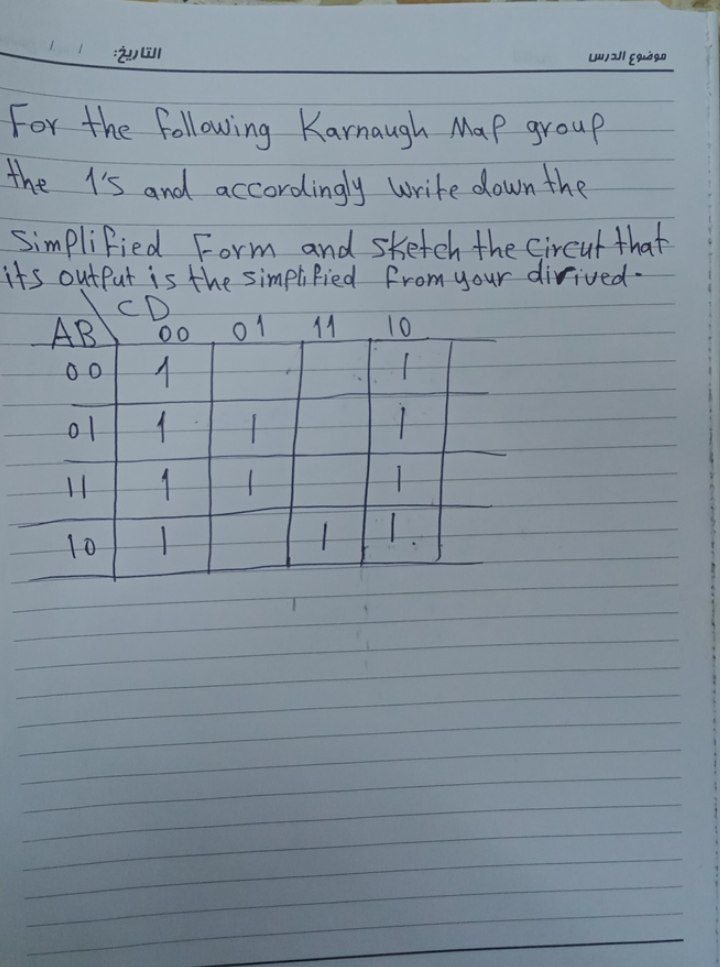 موضوع الدرس التاريخ: / /
For the following Karnaugh Map group
the 1's and accordingly write down the
Simplified Form and sketch the circut that
its output is the simplified from your dirived.
CD
AB 00 01 11 10
00 1 1
01 1 1 1
11 1 1 1
10 1 1 1